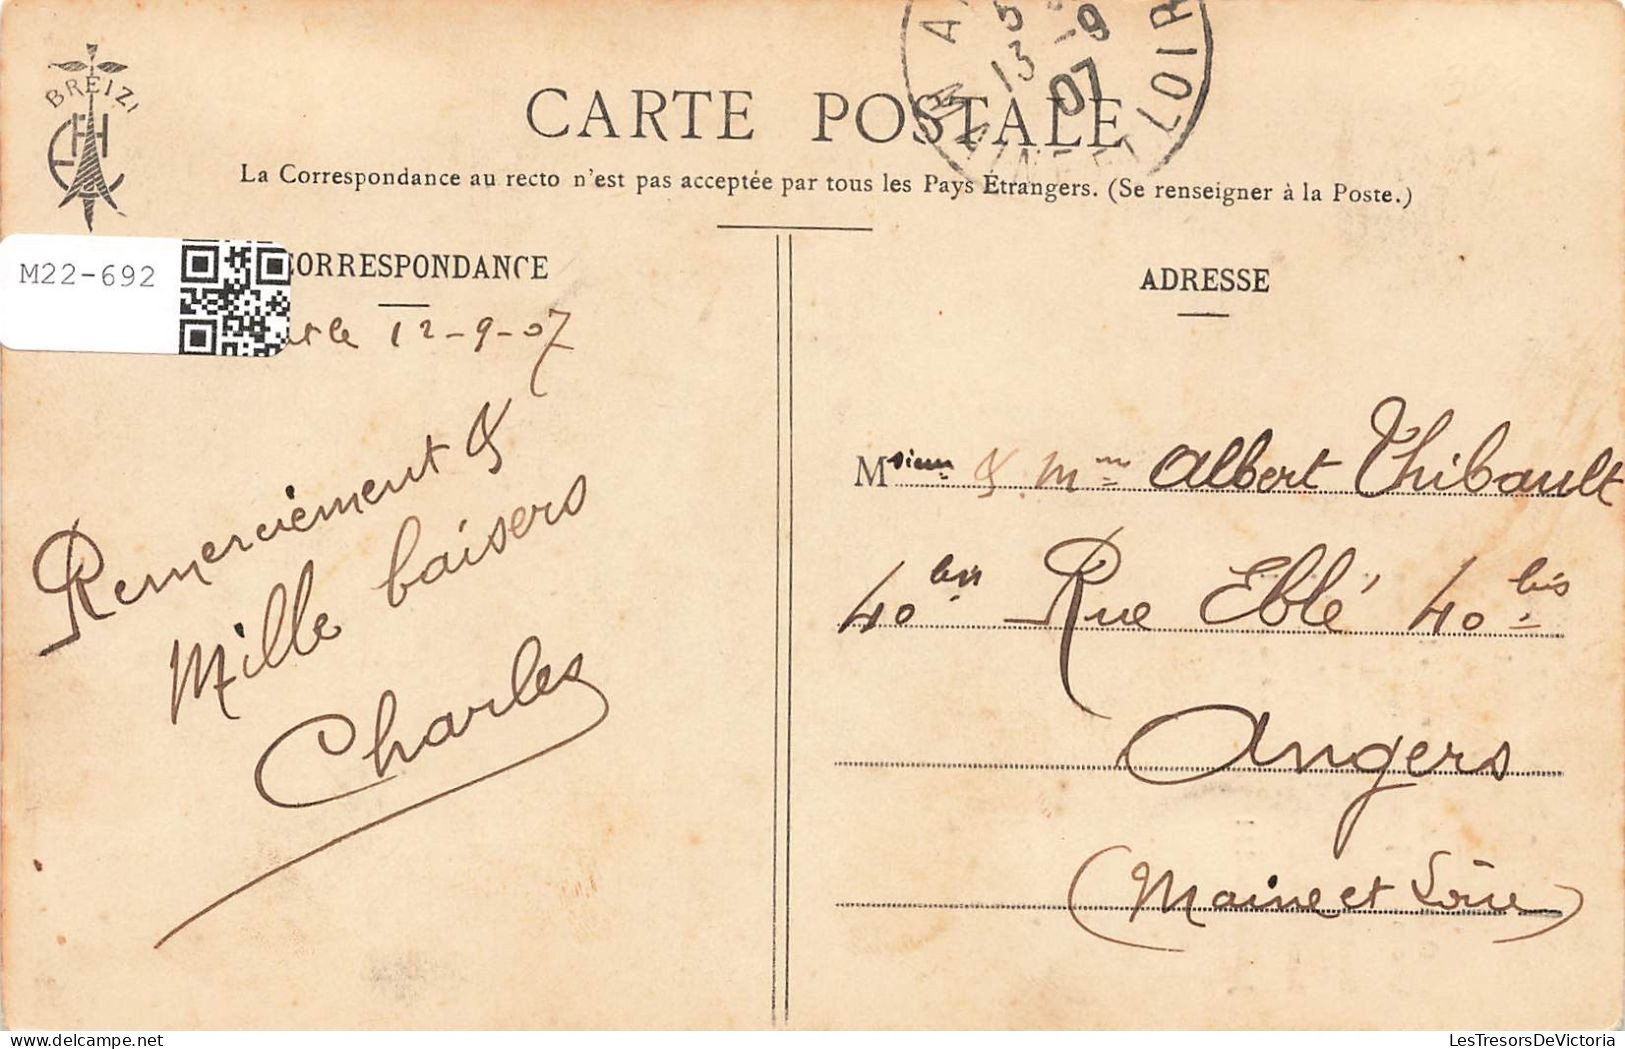 BREIZ
CARTE POSTALE
5
13 -9
07
MAINE ET LOIR
La Correspondance au recto n'est pas acceptée par tous les Pays Étrangers. (Se renseigner à la Poste.)
M22-692
CORRESPONDANCE
le 12-9-07
Remerciement &
Mille baisers
Charles
ADRESSE
Msieur & Mme Albert Thibault
40 bis Rue Eblé 40 bis
Angers
(Maine et Loire)
LesTresorsDeVictoria